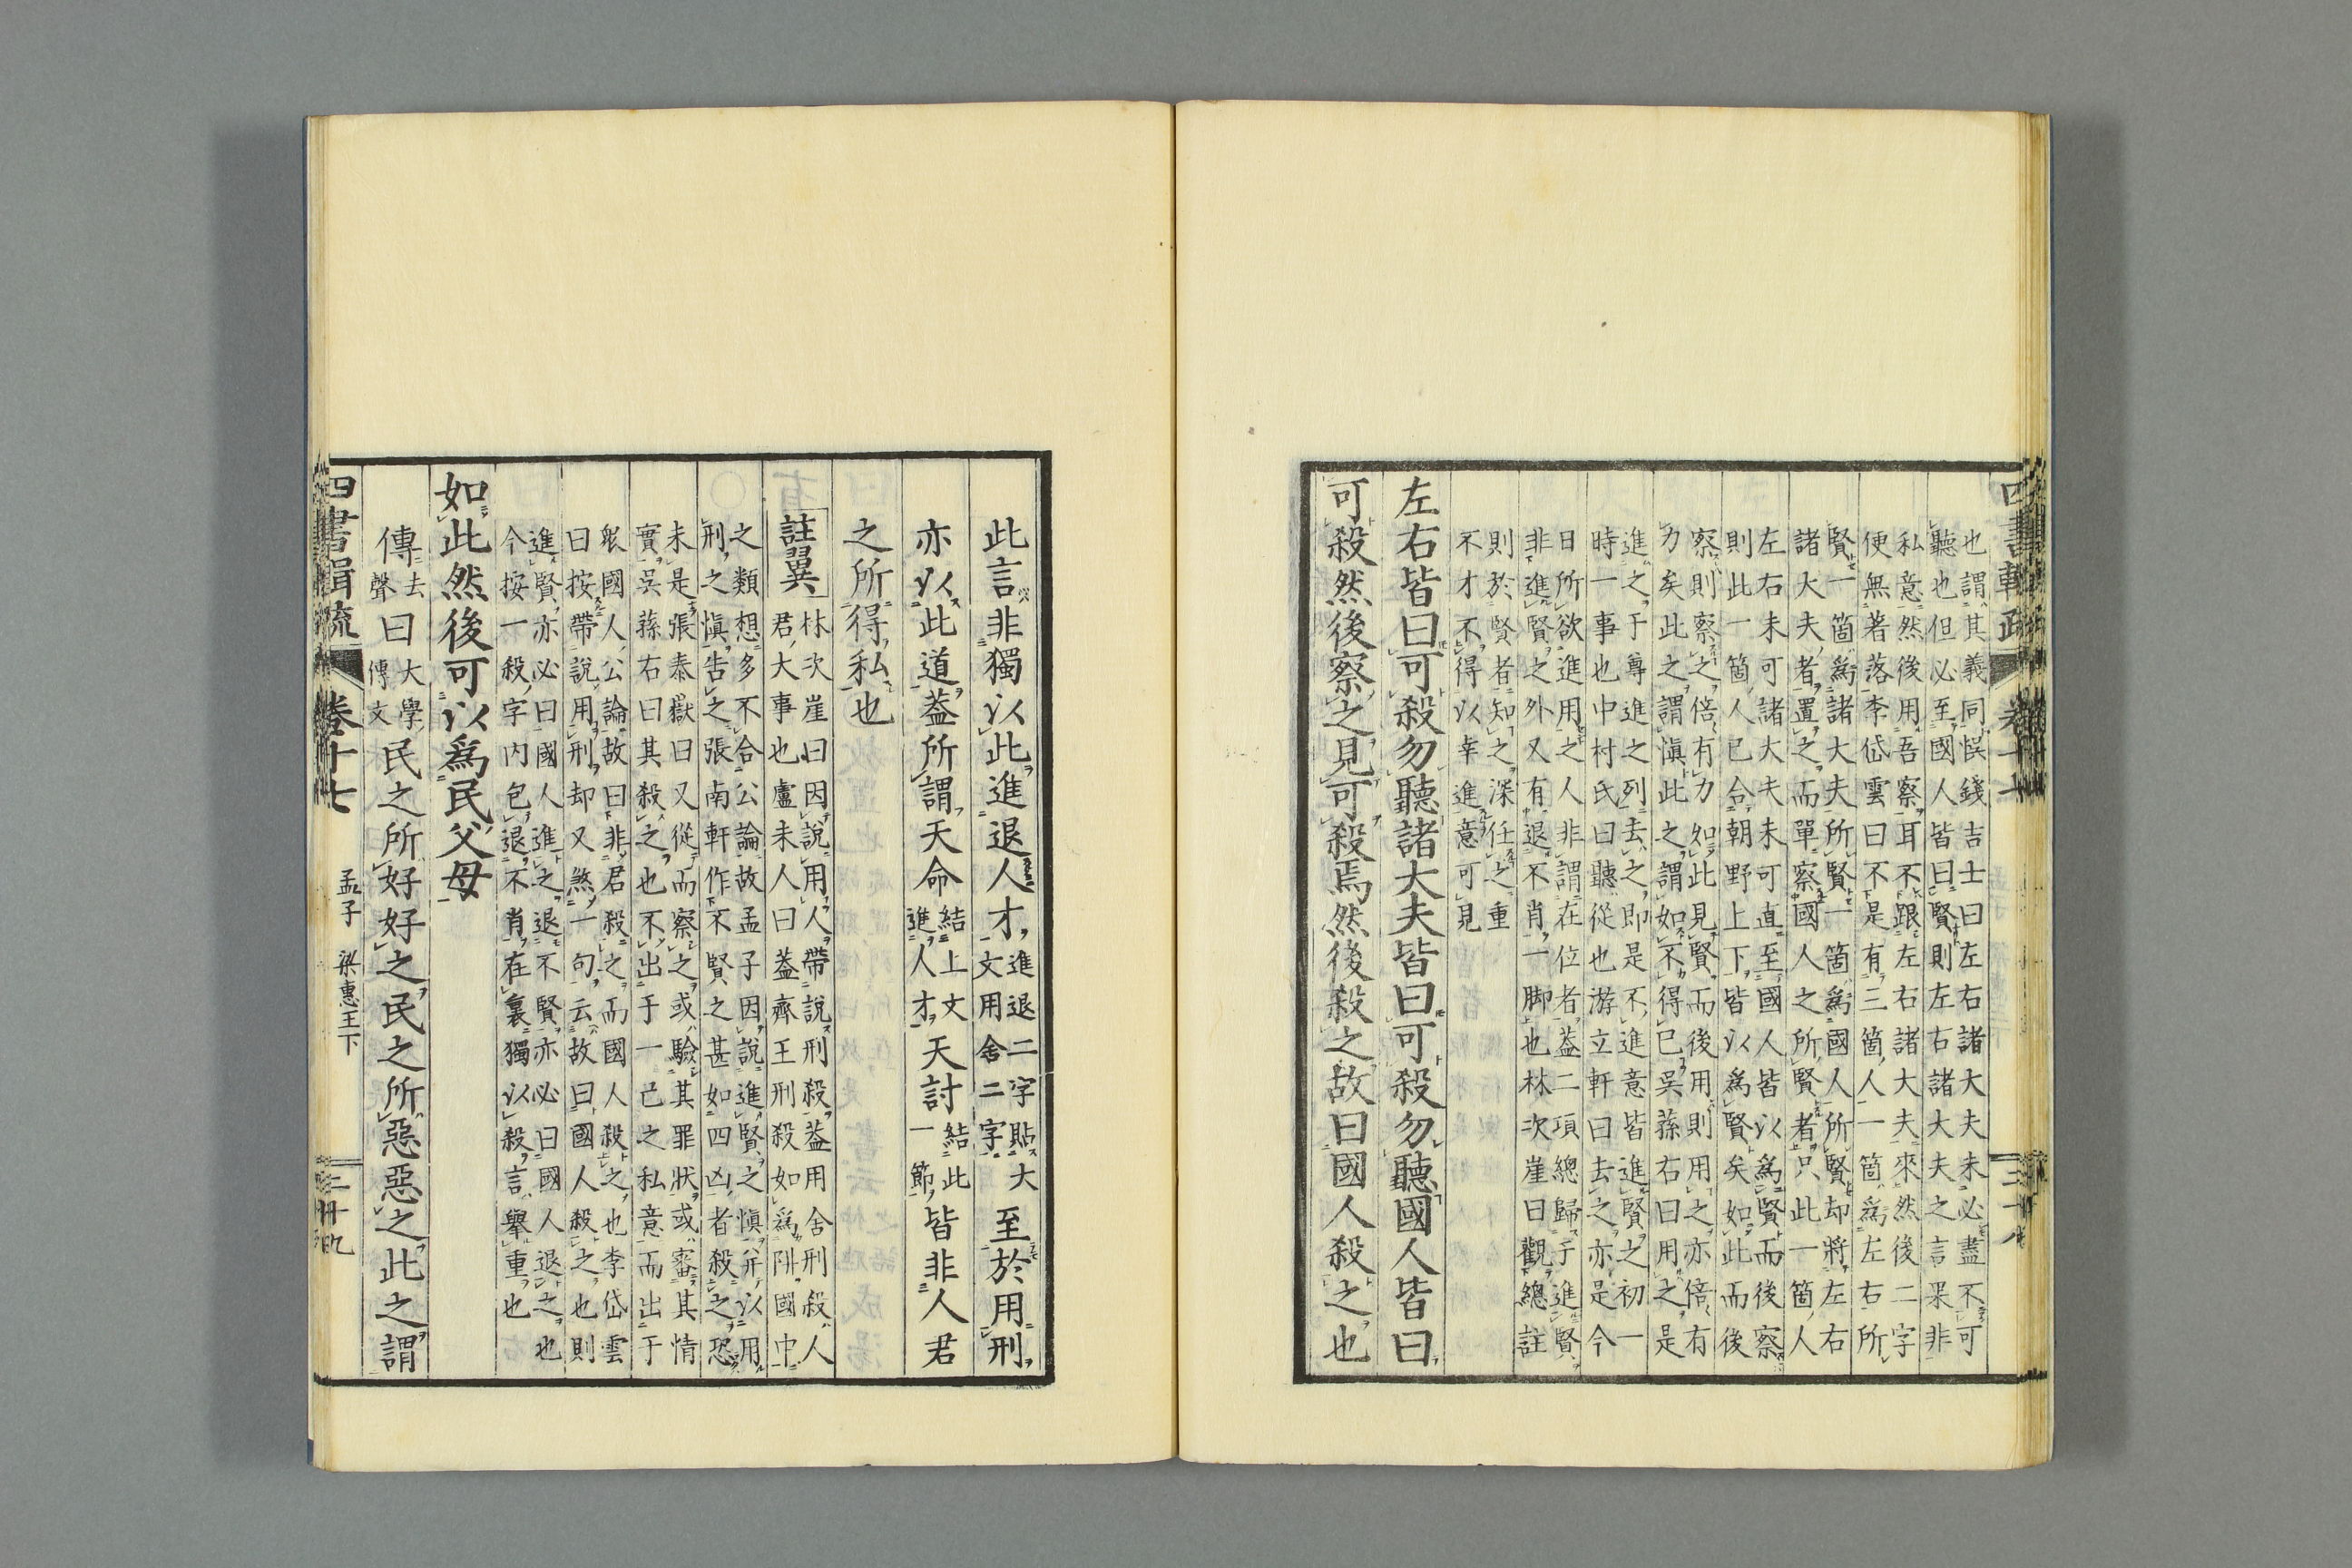 也謂其義同悞錢吉士曰左右諸大夫未必盡不可
聽也但必至國人皆曰賢則左右諸大夫之言果非
私意然後用吾察耳不跟左右諸大夫來然後二字
便無著落李岱雲曰不是有三箇人一箇爲左右所
賢一箇爲諸大夫所賢一箇爲國人所賢却將左右
諸大夫者置之而單察國人之所賢者只此一箇人
左右未可諸大夫未可直至國人皆以爲賢而後察
則此一箇人已合朝野上下皆以爲賢矣如此而後
察則察之倍有力如此見賢而後用則用之亦倍有
力矣此之謂愼此之謂如不得已吳蓀右曰用之是
進之于尊進之列去之即是不進意皆進賢之初一
時一事也中村氏曰聽從也游立軒曰去之亦是今
日所欲進用之人非謂在位者蓋二項總歸于進賢
非進賢之外又有退不肖一脚也林次崖曰觀總註
則於賢者知之深任之重
不才不得以幸進意可見
左右皆曰可殺勿聽諸大夫皆曰可殺勿聽國人皆曰
可殺然後察之見可殺焉然後殺之故曰國人殺之也
此言非獨以此進退人才進退二字貼大
文用舍二字至於用刑
亦以此道蓋所謂天命結上文
進人才天討結此
一節皆非人君
之所得私也
註翼 林次崖曰因說用人帶說刑殺蓋用舍刑殺人
君大事也盧未人曰蓋齊王刑殺如爲阱國中
之類想多不合公論故孟子因說進賢之愼并以用
刑之愼告之張南軒作不賢之甚如四凶者殺之恐
未是張泰嶽曰又從而察之或驗其罪狀或審其情
實吳蓀右曰其殺之也不出于一己之私意而出于
衆國人公論故曰非君殺之而國人殺之也李岱雲
曰按帶說用刑却又煞一句云故曰國人殺之也則
進賢亦必曰國人進之退不賢亦必曰國人退之也
今按一殺字內包退不肖在裏獨以殺言舉重也
如此然後可以爲民父母
傳去
聲曰大學
傳文民之所好好之民之所惡惡之此之謂
四書輯疏 卷十七 孟子 梁惠王下 三十九